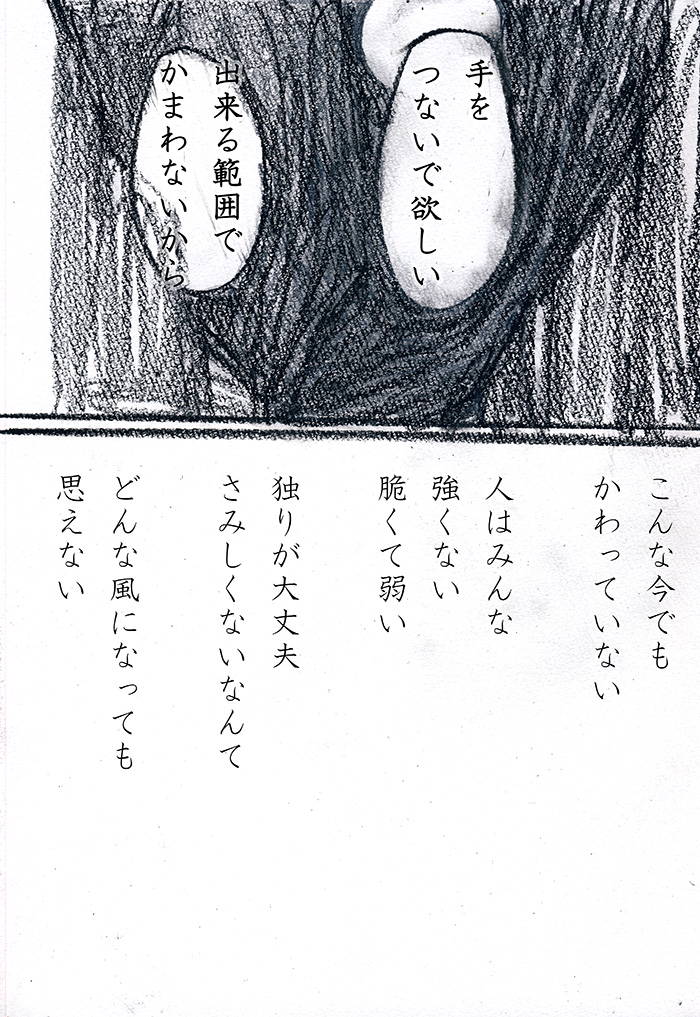 手を
つないで欲しい
出来る範囲で
かまわないから
こんな今でも
かわっていない
人はみんな
強くない
脆くて弱い
独りが大丈夫
さみしくないなんて
どんな風になっても
思えない